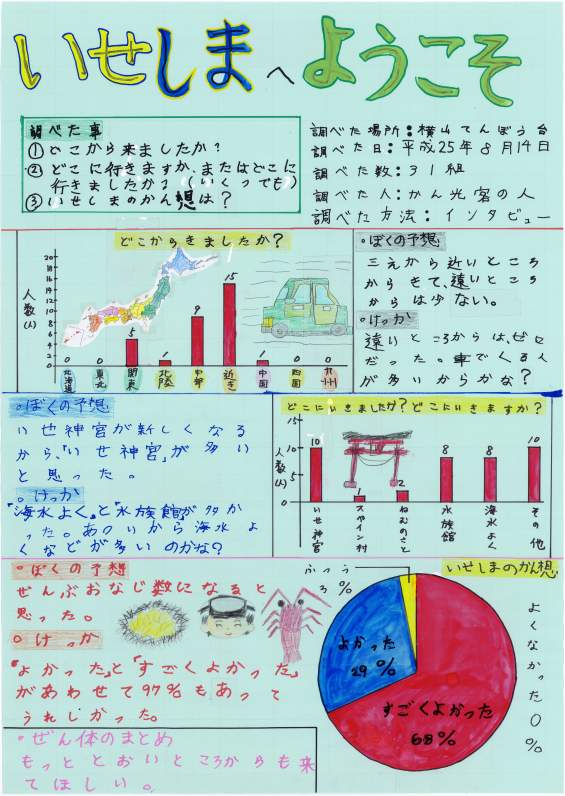 いせしまへようこそ
調べた事
①どこから来ましたか?
②どこに行きますか、またはどこに
行きましたか?(いくつでも)
③いせしまのかん想は?
調べた場所:横山てんぼう台
調べた日:平成25年8月14日
調べた数:31組
調べた人:かん光客の人
調べた方法:インタビュー
どこからきましたか?
人数(人)
20
18
16
14
12
10
8
6
4
2
0
0 0 5 1 9 15 1 0 0
北海道 東北 関東 北陸 中部 近き 中国 四国 九州
○ぼくの予想
三重から近いところ
からきて、遠いところ
からは少ない。
○けっか
遠いところからは、ゼロ
だった。車でくる人
が多いからかな?
○ぼくの予想
いせ神宮が新しくなる
から、「いせ神宮」が多い
と思った。
○けっか
「海水よく」と「水族館」が多か
った。あついから海水よ
くなどが多いのかな?
どこにいきましたか?どこにいきますか?
人数(人)
15
10
5
0
10 1 2 8 8 10
いせ神宮 スペイン村 ねむのさと 水族館 海水よく その他
○ぼくの予想
ぜんぶおなじ数になると
思った。
○けっか
「よかった」と「すごくよかった」
があわせて97%もあって
うれしかった。
いせしまのかん想
ふつう
3%
よかった
29%
すごくよかった
68%
よくなかった0%
○ぜん体のまとめ
もっととおいところからも来
てほしい。